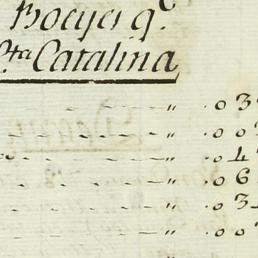 Bocyes q.e
S.ta Catalina
" .03
" .00
" .04
" .06
" .03
" .00